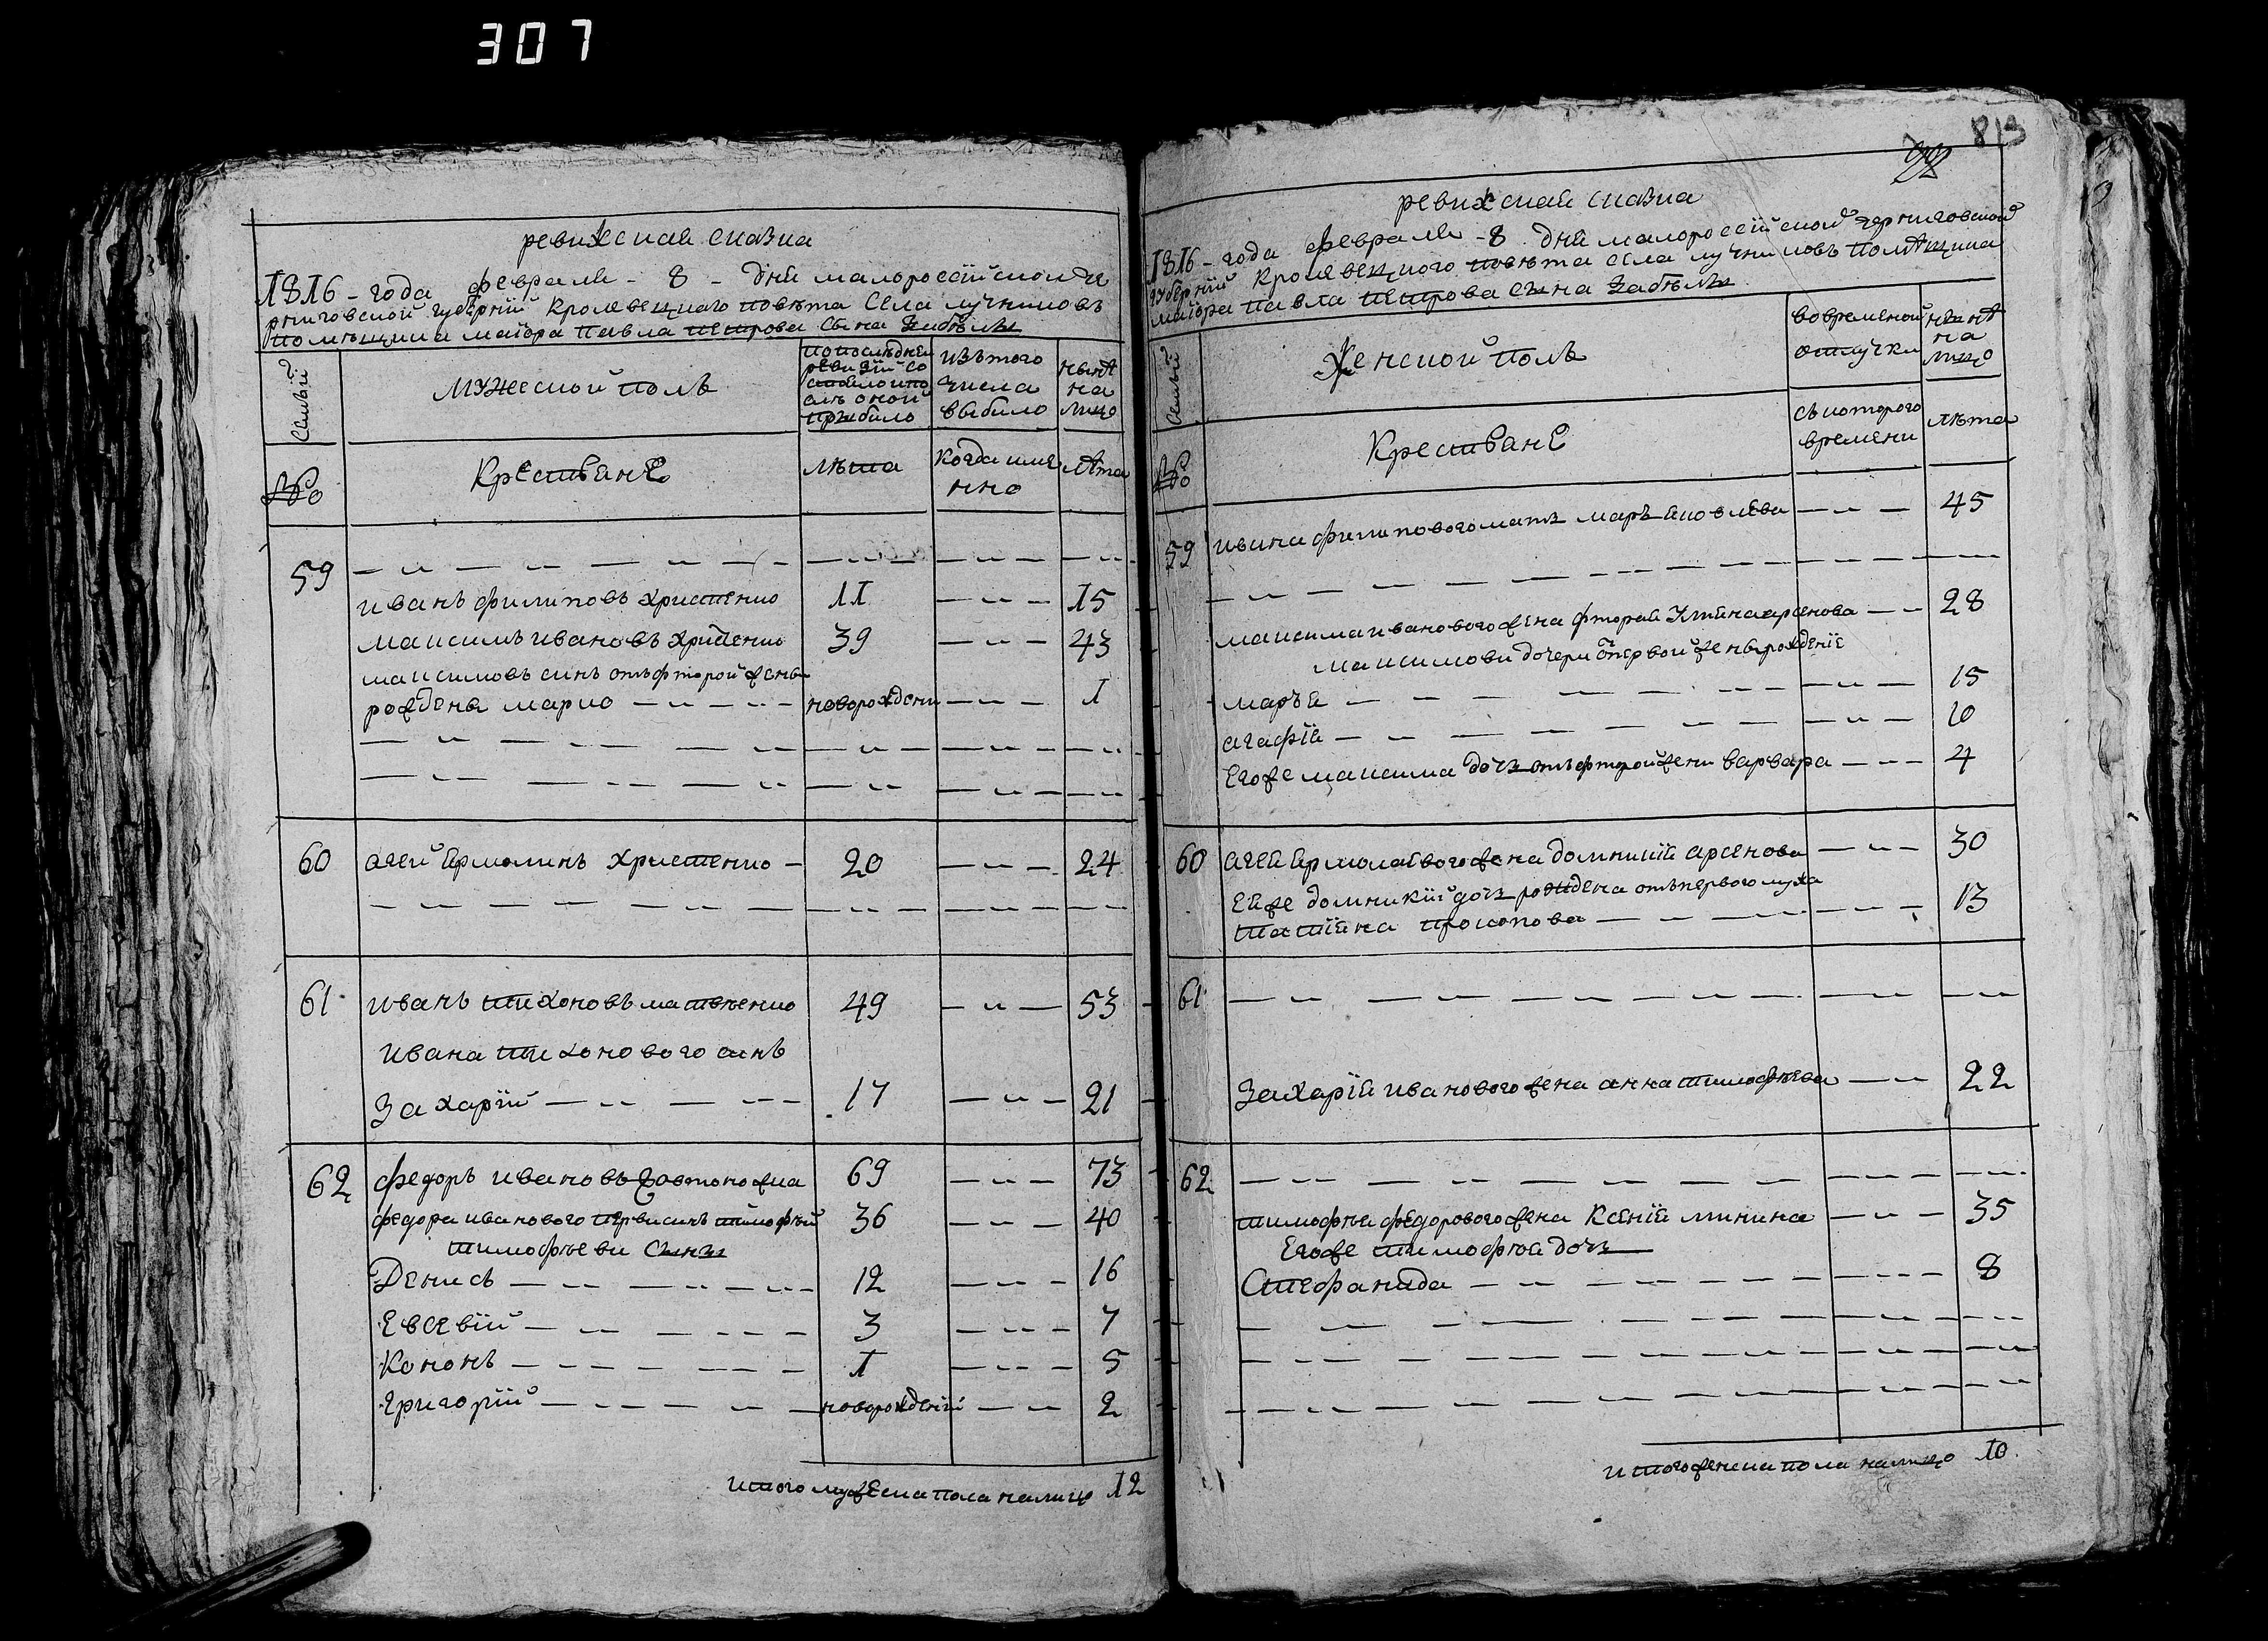 307
ревижская сказка
1816 - года февраля - 8 - дня малороссійской че
рниговской губерній Кролевецкаго повѣта Села лучниковъ
помѣщика маіора павла петрова сына Забѣлы
Семьи
мужеской полъ
по послѣдней
ревизіи со
стояло и по
слѣ оной
прибыло
изъ того
числа
выбыло
нынѣ
на
лицо
№
Крестьяне
лѣта
когда име
нно
лѣта
59 — „ — „ — „ —
иванъ филиповъ христенко 11 — „ — 15
максимъ ивановъ христенко 39 — „ — 43
максимовъ синъ отъ фторой жены
рождена марко — „ — новорождени — „ — 1
— „ — „ — „ —
— „ — „ — „ —
60 агей ярмолинъ христенко — 20 — „ — 24
— „ — „ — „ —
61 иванъ тихоновъ матвѣенко 49 — „ — 53
ивана тихонового синъ
Захарій — „ — 17 — „ — 21
62 федоръ ивановъ 69 — „ — 73
федора иванового перви синъ тимофѣй 36 — „ — 40
тимофѣеви сыны
Денисъ — „ — 12 — „ — 16
Евсевій — „ — 3 — „ — 7
Кононъ — „ — 1 — „ — 5
григорій — „ — новорожденій — „ — 2
итого мужеска пола налицо 12
813
ревижская сказка
1816 - года февраля - 8 - дня малороссійской черниговской
губерній Кролевецкого повѣта села лучниковъ помѣщика
маіора павла петрова сына Забѣлы
Семьи
женской полъ
во временной
отлучки
нынѣ
на
лицо
№
Крестьяне
съ которого
времени
лѣта
59 ивана филипового мать марья яковлева — „ — 45
— „ — „ — „ —
максима иванового жена фторая устина арсенова — „ — 28
максимови дочери отъ первой жены рожденіе
марья — „ — 15
агафія — „ — 10
Егоже максима дочь отъ фторой жени варвара — „ — 4
60 агея ярмолаевого жена домникія арсенова — „ — 30
Еяже домникіи дочь рождена отъ первого мужа
татіяна прокопова — „ — 13
61 — „ — „ — „ —
Захарія иванового жена анна тимофѣева — „ — 22
62 — „ — „ — „ —
тимофѣя федорового жена Ксенія минина — „ — 35
Егоже тимофѣя дочь
Стефанида — „ — 8
— „ — „ — „ —
— „ — „ — „ —
— „ — „ — „ —
итого женска пола налицо 10